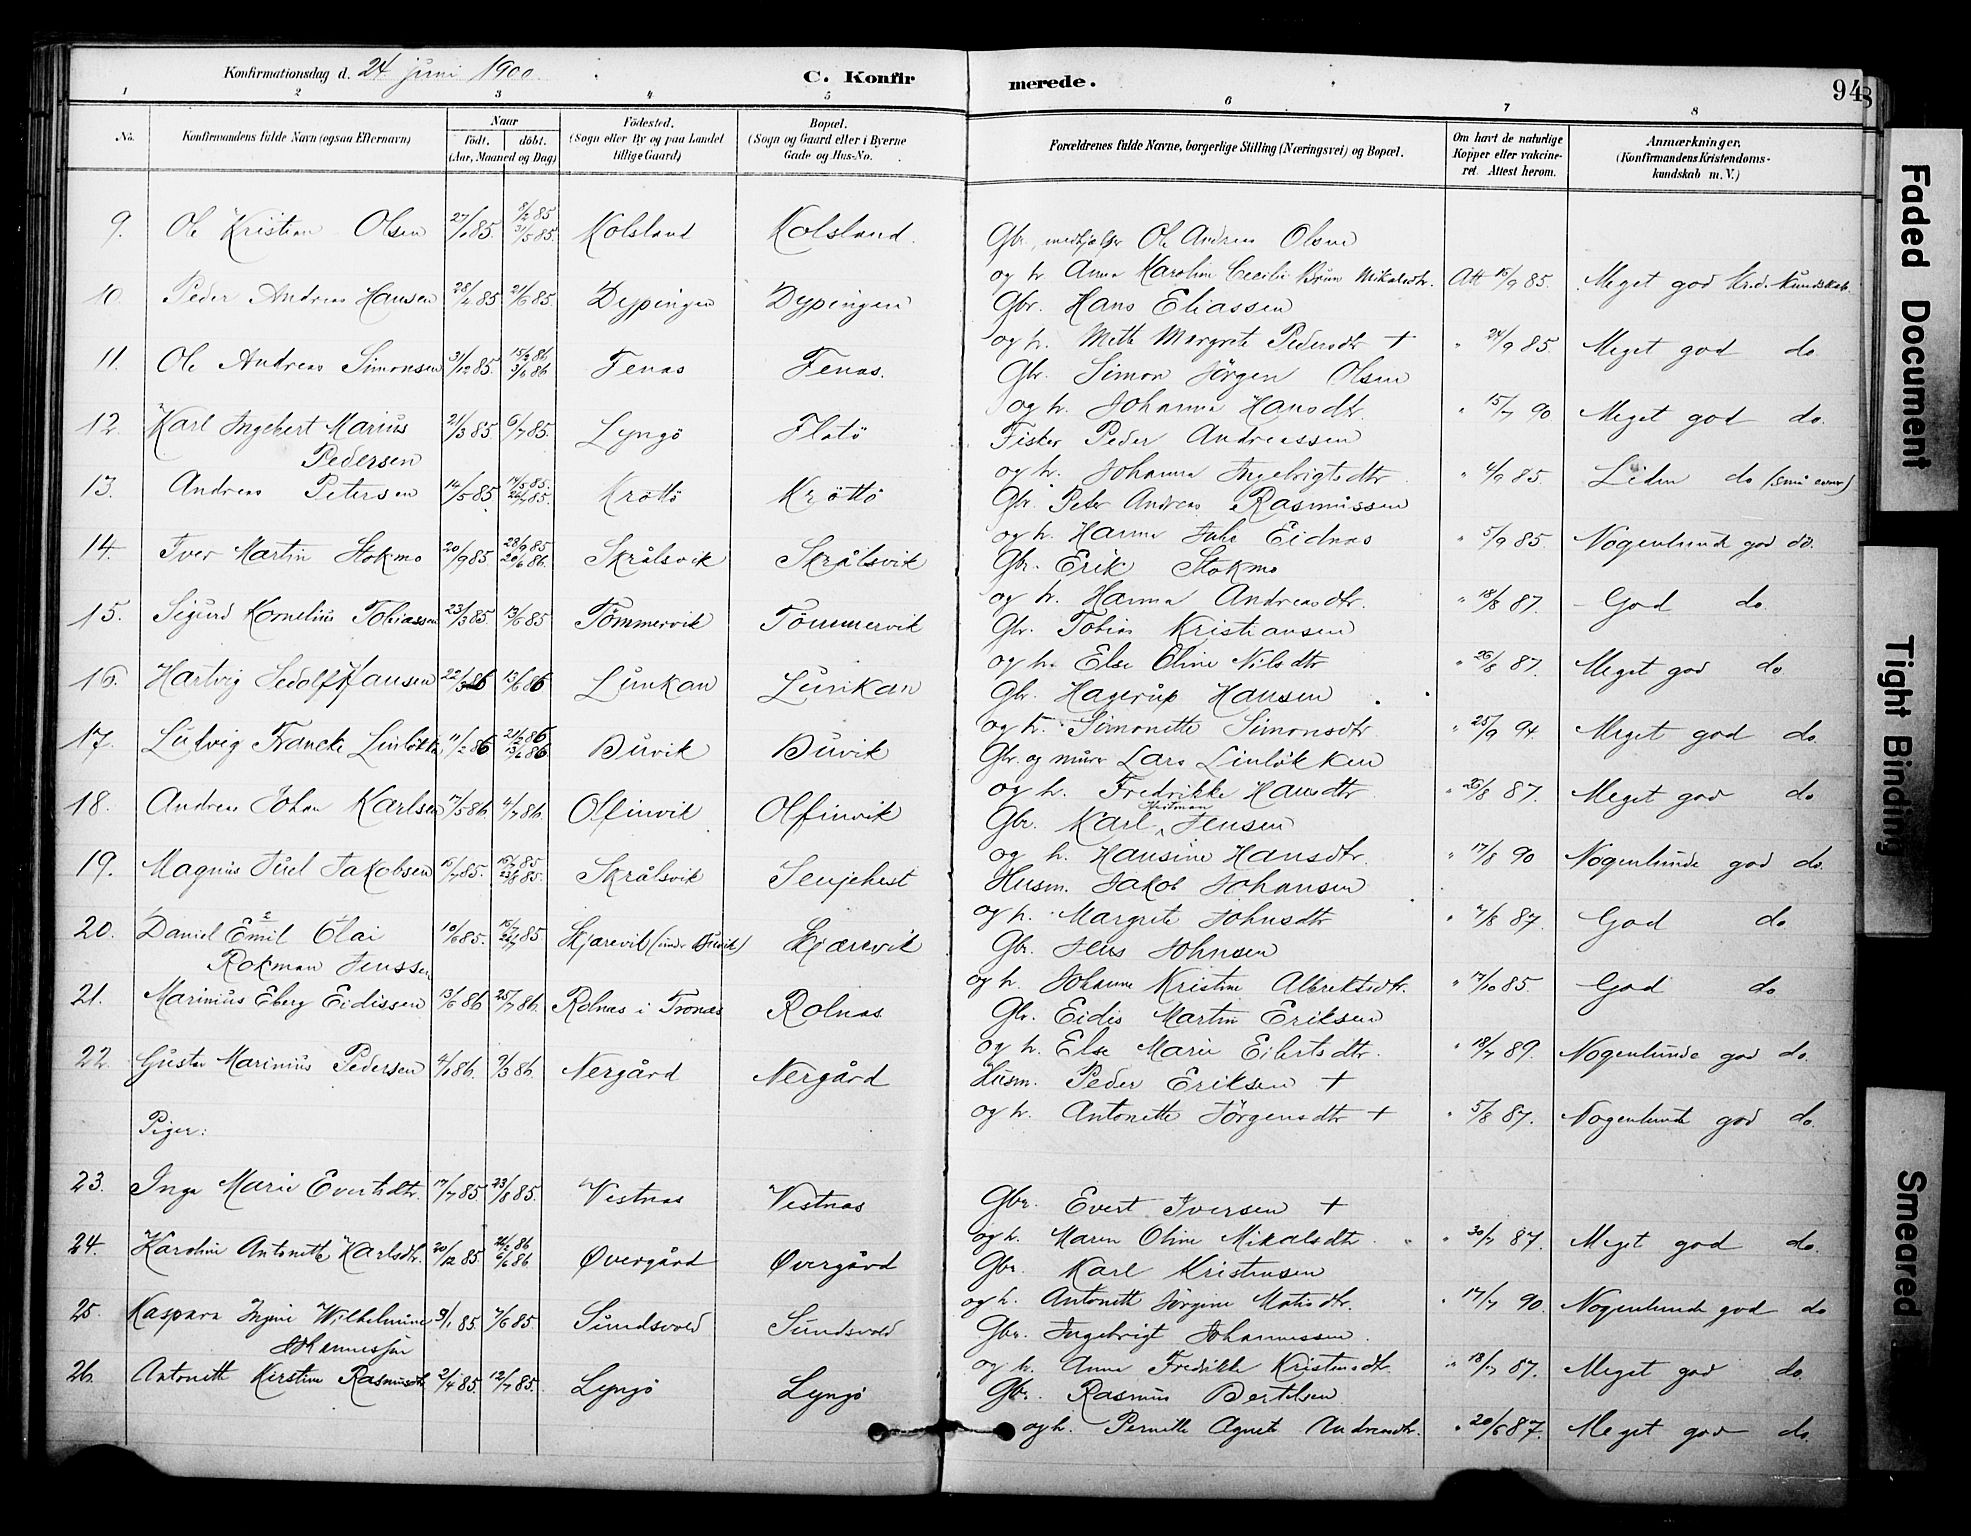 Konfirmationsdag d. 24 juni 1900. C. Konfirmerede. 94
1 2 3 4 5 6 7 8
No. Konfirmandens fulde Navn (ogsaa Efternavn) Naar Födt. döbt. (Aar, Maaned og Dag) Födested. (Sogn eller By og paa Landet tillige Gaard) Bopæl. (Sogn og Gaard eller i Byerne Gade og Hus-No. Forældrenes fulde Navne, borgerlige Stilling (Næringsvei) og Bopæl. Om havt de naturlige Kopper eller vakcineret. Attest herom. Anmærkninger. (Konfirmandens Kristendomskundskab m. V.)
9. Ole Kristian Olsen 85. 8/2 85 31/5 85. Kolsland Kolsland. Gbr., medhjelper Ole Andreas Olsen
og h. Anna Karoline Cecilie Brun Mikalsdtr. Att 15/9 85. Meget god krd. kundskab.
10. Peder Andreas Hansen 28/2 85 21/6 85. Dypingen Dypingen Gbr. Hans Eliassen
og h. Mette Margrete Pedersdtr + " 24/9 85. Meget god do
11. Ole Andreas Simonsen 31/12 85. 15/2 86 3/6 86 Fenas Fenas. Gbr. Simon Jörgen Olsen
og h. Johanna Hansdtr. " 15/7 90 Meget god do.
12. Karl Ingebert Marius 21/3 85 6/7 85. Lyngö Flatö Fisker Peder Andreassen
Pedersen
og h. Johanna Ingebrigtsdtr " 4/9 85. Liden do (små evner)
13. Andreas Petersen 14/5 85 14/5 85. 26/7 85. Kröttö Kröttö Gbr. Peter Andreas Rasmussen
og h. Hanna Eidnas " 5/9 85. Nogenlunde god do.
14. Iver Martin Stokmo 20/9 85 28/9 85 20/6 86. Skrålsvik Skrålsvik Gbr. Erik Stokmo
og h. Hanna Andreasdtr. " 18/8 87. God do.
15. Sigurd Kornelius Tobiassen 23/3 85. 13/6 85 Tömmervik Tömmervik Gbr. Tobias Kristiansen
og h. Else Oline Nilsdtr " 26/8 87. Meget god do
16. Hartvig Sedolf Hansen 22/3 86 13/6 86 Lunkan Lunkan Gbr. Hagerup Hansen
og h. Simonette Simonsdtr " 25/9 94. Meget god do.
17. Ludvig Francke Linløkken 11/2 86 21/2 86 13/6 86 Buvik Buvik Gbr. og murer Lars Linløkken
og h. Fredrikke Hansdtr " 26/8 87. Meget god do
18. Andreas Johan Karlsen 17/5 86 4/7 86. Olfinvik Olfinvik Gbr. Karl Hartman Jensen
og h. Hansine Hansdtr. " 17/8 90 Nogenlunde god do
19. Magnus Juel Jakobsen 15/7 85. 15/7 85 23/8 85. Skrålsvik Senjehest Husm. Jakob Johansen
og h. Margrete Johnsdtr " 4/8 87. God do
20. Daniel Emil Olai 10/6 85. 85 Skjærevik (under Buvik) Skjærevik Gbr. Jens Johnsen
Rokman Jenssen
og h. Johanna Kristine Albriktsdtr. " 17/10 85. God do
21. Marinius Eberg Eidissen 13/6 86 25/7 86. Rolnas i Tronæs Rolnas Gbr. Eidis Martin Eriksen
og h. Else Marie Eilertsdtr. " 18/7 89. Nogenlunde god do.
22. Gustav Marinius Pedersen 4/1 86. 7/3 86. Nergård Nergård Husm. Peder Eriksen +
og h. Antonette Jörgensdtr + " 5/8 87. Nogenlunde god do.
Piger:
23. Inga Marie Evertsdtr. 17/7 85 23/8 85. Vestnas Vestnas Gbr. Evert Iversen +
og h. Maren Oline Mikalsdtr. " 30/7 87. Meget god do.
24. Karoline Antonette Karlsdtr. 20/12 85. 86 6/6 86 Øvergård Øvergård Gbr. Karl Kristensen
og h. Antonette Jörgine Matisdtr. " 17/7 90. Nogenlunde god do
25. Kaspara Ingine Wilhelmine 9/1 85. 7/6 85. Sundsvold Sundsvold Gbr. Ingebrigt Johannessen.
Johannessen
og h. Anna Fredrikke Kristensdtr. " 18/7 87. Meget god do.
26. Antonette Kirstine Rasmusdtr 2/4 85. 12/7 85. Lyngö Lyngö Gbr. Rasmus Bertelsen
og h. Pernille Agnete Andreasdtr. " 20/6 87. Meget god do.
Faded Document
Tight Binding
Smeared